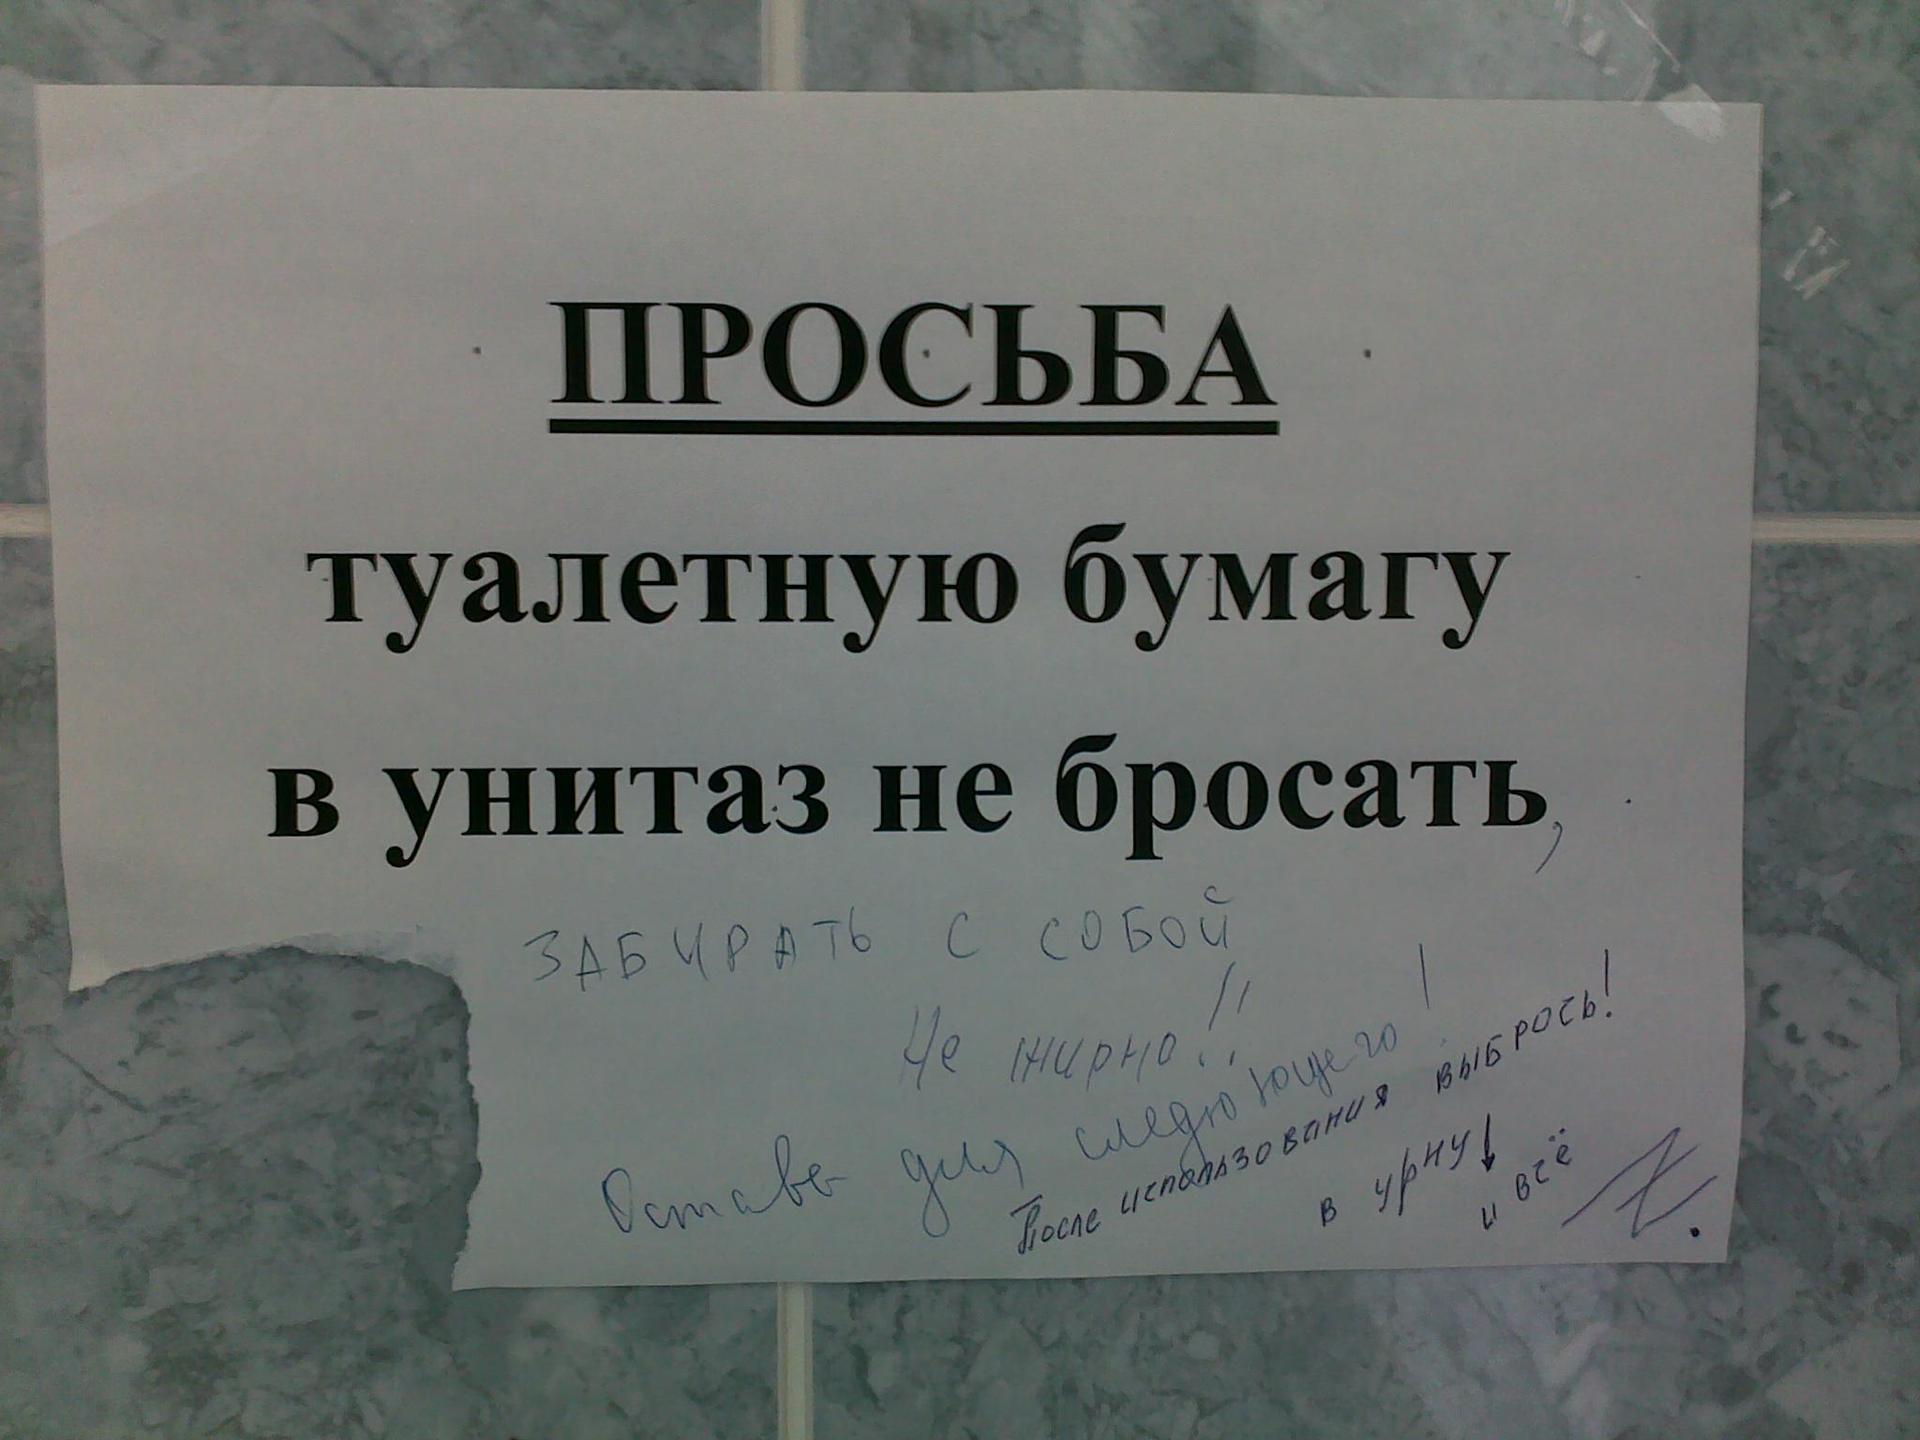 ПРОСЬБА
туалетную бумагу
в унитаз не бросать,
ЗАБИРАТЬ С СОБОЙ
Не жирно!!
Оставь для следующего!
После использования выбрось!
в урну!
и всё